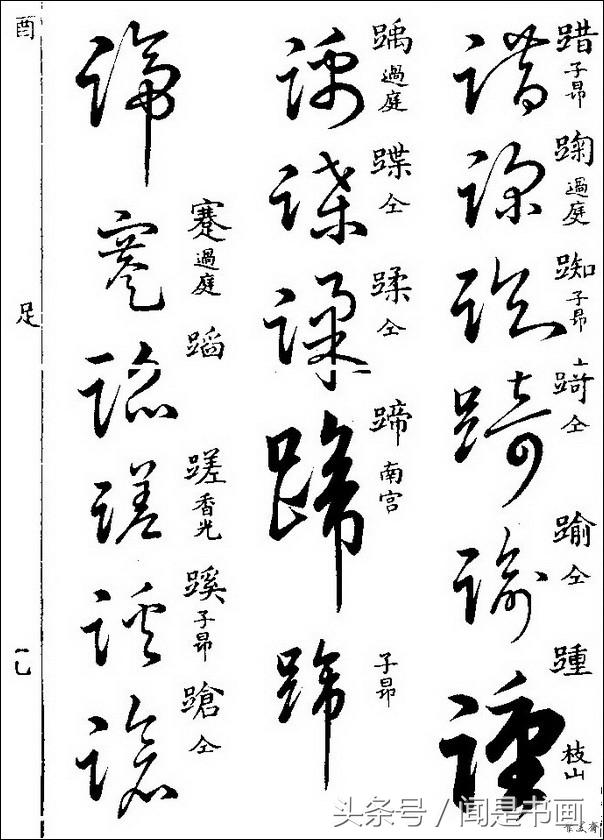 踖 子昂
踘 過庭
踟 子昂
踦 仝
踰 仝
踵 枝山
踽 過庭
蹀 仝
蹂 仝
蹄 南宫
子昂
蹇 過庭
蹈
蹉 香光
蹊 子昂
蹌 仝
酉
足
头条号 / 闻是书画